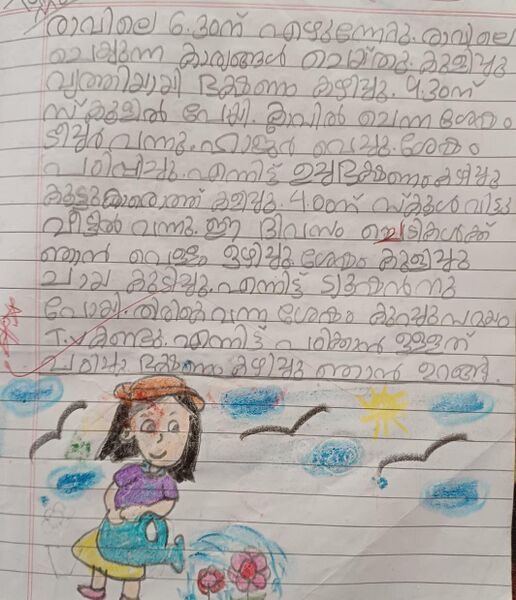 രാവിലെ 6.30ന് എഴുന്നേറ്റു. രാവിലെ
ചെയ്യുന്ന കാര്യങ്ങൾ ചെയ്തു. കുളിച്ചു
വൃത്തിയായി ഭക്ഷണം കഴിച്ചു. 9.30ന്
സ്കൂളിൽ പോയി. ക്ലാസിൽ ചെന്ന ശേഷം
ടീച്ചർ വന്നു. ഹാജർ വെച്ചു. ശേഷം
പഠിപ്പിച്ചു. എന്നിട്ട് ഉച്ചഭക്ഷണം കഴിച്ചു
കൂട്ടുകാരൊത്ത് കളിച്ചു. 4.00ന് സ്കൂൾ വിട്ടു
വീട്ടിൽ വന്നു. ഈ ദിവസം ചെടികൾക്ക്
ഞാൻ വെള്ളം ഒഴിച്ചു. ശേഷം കുളിച്ചു
ചായ കുടിച്ചു. എന്നിട്ട് ട്യൂഷൻനു
പോയി. തിരികെ വന്ന ശേഷം കുറച്ചുസമയം
T.V കണ്ടു. എന്നിട്ട് പഠിക്കാൻ ഉള്ളത്
പഠിച്ചു ഭക്ഷണം കഴിച്ചു ഞാൻ ഉറങ്ങി.